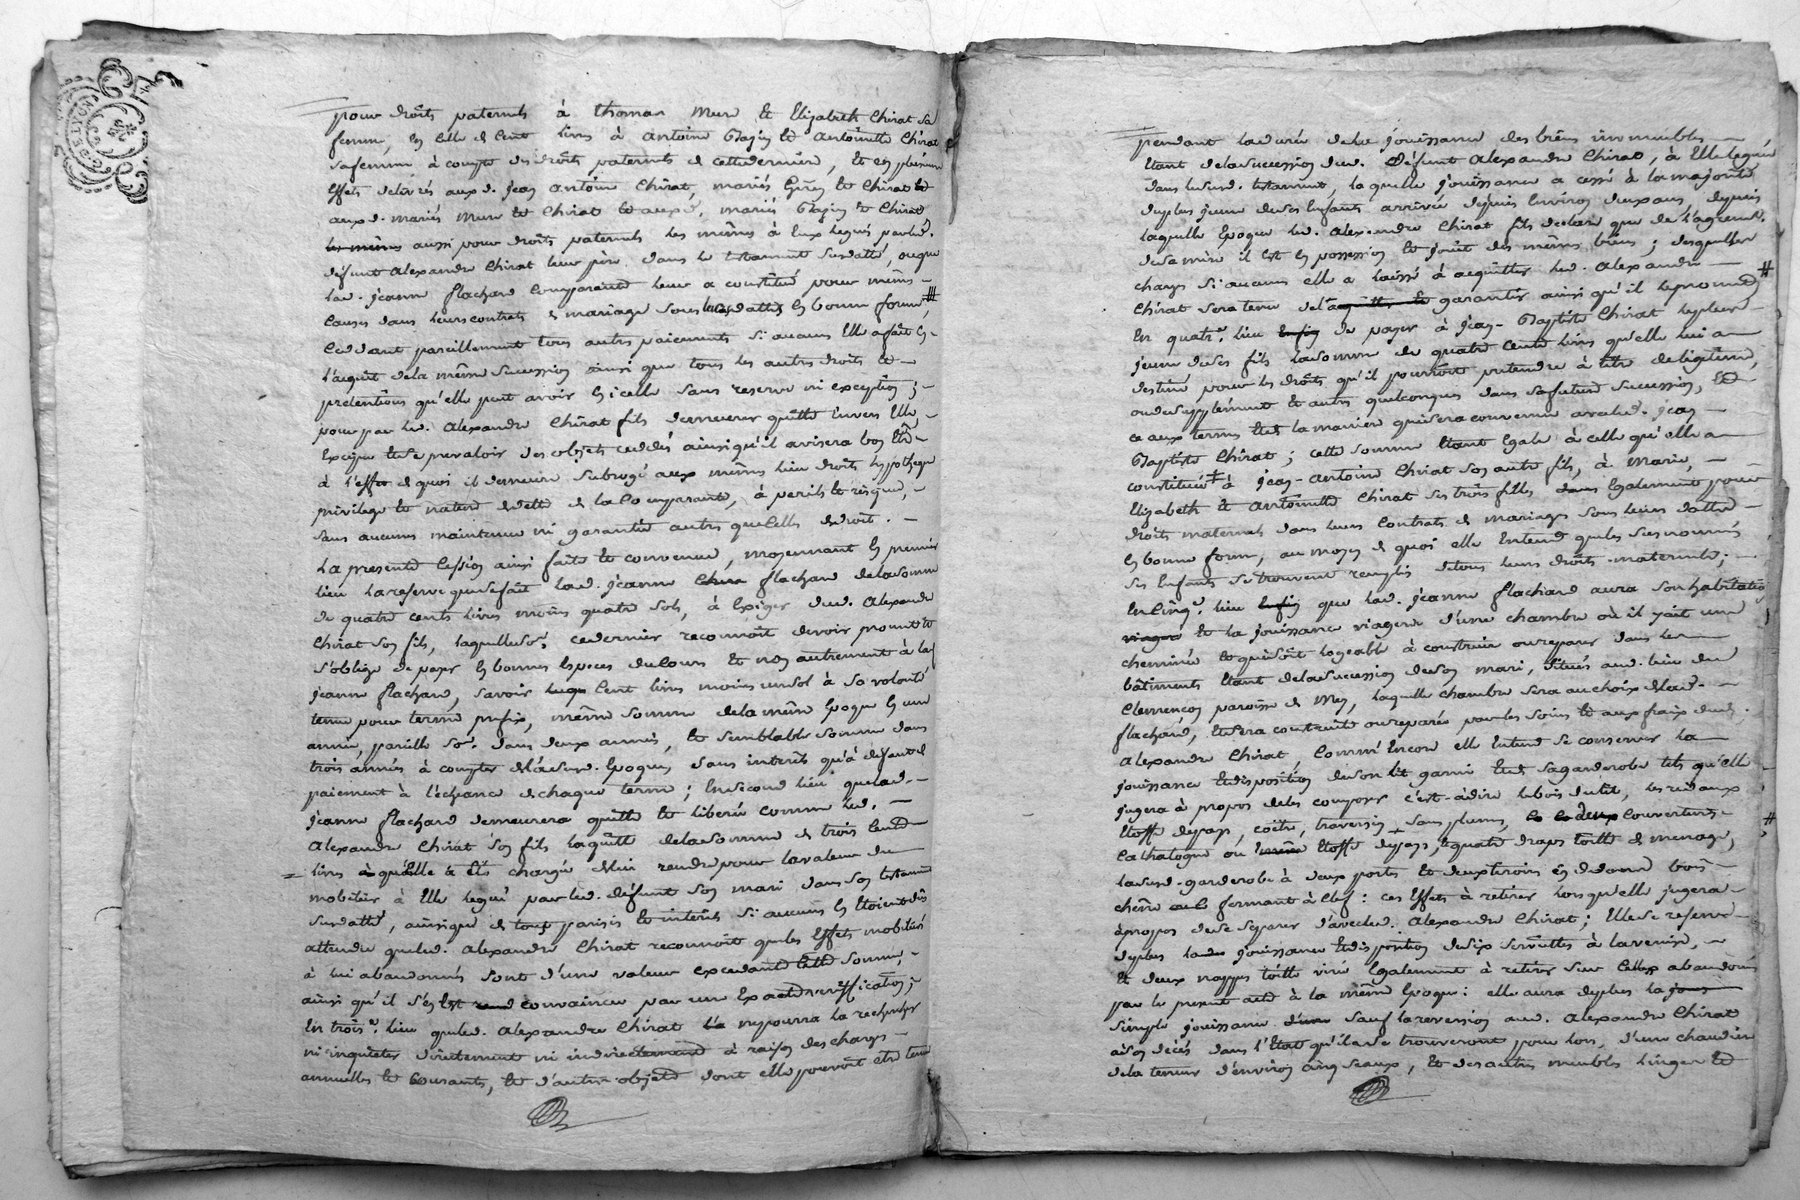 DE LYON
pour droits paternels à thomas Mure et Elizabeth Chirat sa
femme, en celle de Cent livres à antoine Bajin et antoinette Chirat
sa femme à compte des droits paternels de cette derniere, et en plusieurs
Effets delivrés aux d. jean antoine Chirat, mariés et Chirat et
aux d. mariés Mure et Chirat et aux d. mariés Bajin et Chirat
les mêmes aussi pour droits paternels les mêmes à Eux legués par led.
défunt alexandre Chirat leur père dans le testament susdatté, ou que
lad. jeanne flachard Comparante leur a constitué pour mêmes
Causes dans leurs contrats de mariage sous leurs dattes en bonne forme, #
Cedant pareillement tous autres paiements si aucuns Elle a fait en
l'acquit de la même succession ainsi que tous les autres droits et
prétentions qu'elle peut avoir en icelle sans reserve ni exception;
pour par led. alexandre Chirat fils demeurer quitte envers Elle
Exciper et se prevaloir des objets cedés ainsi qu'il avisera bon Etre
à l'effet de quoi il demeure subrogé aux mêmes lieu droits hypotheque
privilege et nature de dette de la Comparante, à perils et risque,
sans aucune maintenue ni garantie autres que celles de droit.
La presente Cession ainsi faite et convenue, moyennant en premier
lieu la reserve que se fait lad. jeanne Chira flachard de la somme
de quatre cents livres moins quatre sols, à Exiger dud. alexandre
Chirat son fils, laquelle so.e ce dernier reconnoit devoir promet et
s'oblige de payer en bonnes Especes du Cours et non autrement à lad.
jeanne flachard, savoir Cent livres moins un sol à sa volonté
tenue pour terme prefix, même somme de la même Epoque en une
année, pareille so.e dans deux années, et semblable somme dans
trois années à compter de la susd. Epoque, sans interêts qu'à défaut de
paiement à l'échéance de chaque terme; En second lieu que lad.
jeanne flachard demeurera quitte et liberée comme led.
alexandre Chirat son fils la quitte de la somme de trois Cents
livres qu'elle a Eté chargée de lui rendre pour la valeur du
mobilier à Elle legué par led. défunt son mari dans son testament
susdatté, ainsi que de tous parisis et interêts si aucuns en Etoient dus
attendu que led. alexandre Chirat reconnoit que les Effets mobiliers
à lui abandonnés sont d'une valeur excedant cette somme,
ainsi qu'il s'en Est rend convaincu par une Exacte verification;
En trois.e lieu que led. alexandre Chirat ne pourra la rechercher
ni inquieter directement ni indirectement à raison des charges
annuelles et Courantes, et d'autre objets dont elle pourroit etre tenue
pendant la durée de la jouissance des biens immeubles
Etant de la succession dud. défunt alexandre Chirat, à Elle leguée
dans le susd. testament, laquelle jouissance a cessé à la majorité
du plus jeune de ses Enfants arrivée depuis Environ deux ans, depuis
laquelle Epoque led. alexandre Chirat fils déclare que de l'agrément
de sa mère il est en possession et jouit des mêmes biens; desquelles
charges si aucunes elle a laissé à acquitter led. alexandre #
Chirat sera tenu de l'acquitter et garantir ainsi qu'il le promet
En quatr.e lieu Enfin de payer à jean-Baptiste Chirat le plus
jeune de ses fils la somme de quatre Cents livres qu'elle lui a
destiné pour les droits qu'il pourroit pretendre à titre de legitime,
ou de supplément et autres quelconques dans sa future succession, et
ce aux termes et de la maniere qui sera convenue avec led. jean
Baptiste Chirat; cette somme Etant Egale à celle qu'elle a
constituée à jean-antoine Chirat son autre fils, à Marie,
Elizabeth et antoinette Chirat ses trois filles Egalement pour
droits maternels dans leurs Contrats de mariages sous leurs dattes
en bonne forme, au moyen de quoi elle Entend que les susnommés
ses Enfants se trouvent remplis de tous leurs droits maternels;
En cinq.e lieu Enfin que lad. jeanne flachard aura son habitation
viagere et la jouissance viagere d'une chambre où il y ait une
cheminée et qui soit logeable à construire ou reparer dans les
bâtiments Etant de la succession de son mari, situés aud. lieu du
Clemencon paroisse de Mey, laquelle chambre sera au choix de lad.
flachard, et sera construite ou reparée par les soins et aux fraix dud.
alexandre Chirat, Comm'Encore elle Entend se conserver la
jouissance et disposition de son lit garni et de sa garderobe tels qu'elle
jugera à propos de les composer c'est-à-dire le bois du lit, les rideaux
Etoffe du pays, coëtre, traversin sans plumes, couvertures #
Cathalogne ou Etoffe du pays, quatre draps toille de menage,
la susd. garderobe à deux portes et deux tiroirs en dedans bois
chêne fermant à Clef: ces Effets à retirer lors qu'elle jugera
à propos de se separer d'avec led. alexandre Chirat; Elle se reserve
de plus jouissance et disposition de six serviettes à la venise,
et deux nappes toille Egalement à retirer sur celles abandonnées
par le present acte à la même Epoque: elle aura de plus la jouis
simple jouissance sauf la reversion aud. alexandre Chirat
à son décès dans l'Etat qu'ils se trouveront pour lors, d'une chaudiere
de la teneur d'environ cinq seaux, et des autres meubles linges et